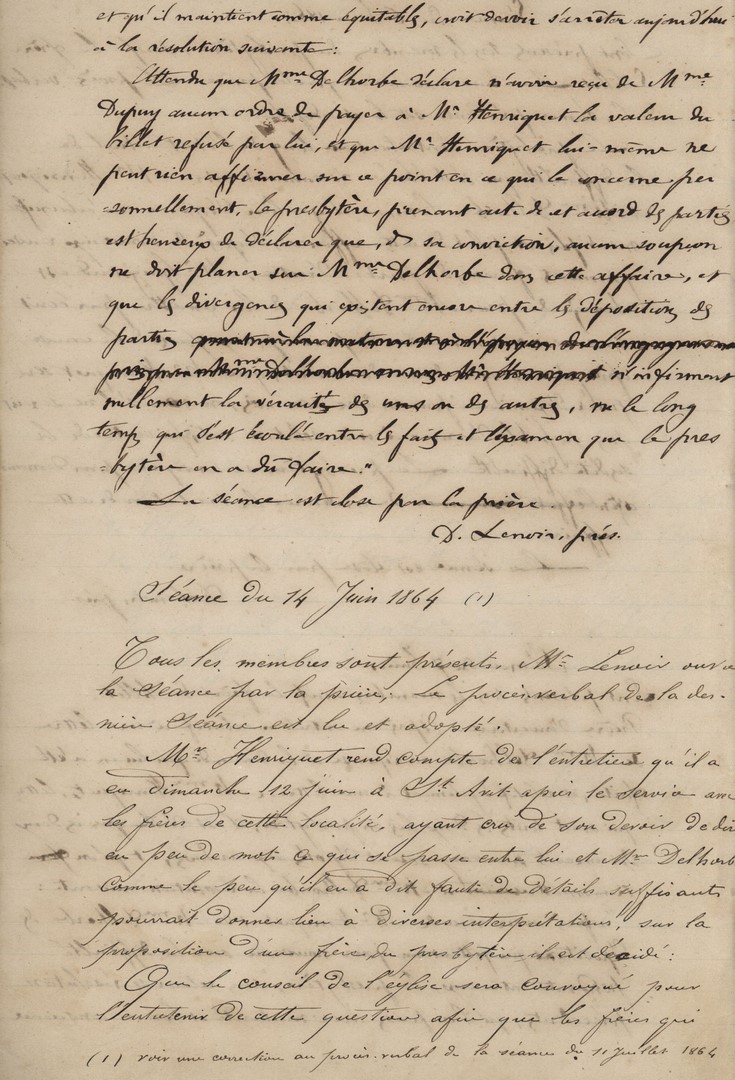 et qu'il maintient comme équitables, croit devoir s'arrêter aujourd'hui
à la résolution suivante :
Attendu que Mme Delhorbe déclare n'avoir reçu de Mme
Dupuy aucun ordre de payer à Mr Henriquet la valeur du
billet refusé par lui, et que Mr Henriquet lui-même ne
peut rien affirmer sur ce point en ce qui le concerne per
sonnellement, le presbytère, prenant acte de et accord des parties
est heureux de déclarer que, ds sa conviction, aucun soupçon
ne doit planer sur Mme Delhorbe dans cette affaire, et
que les divergences qui existent encore entre les dépositions des
parties n'infirment
nullement la véracité des uns ou des autres, vu le long
temps qui s'est écoulé entre les faits et l'examen que le pres
=bytère en a dû faire."
La séance est close par la prière.
D. Lenoir, prés.
Séance du 14 Juin 1864 (1)
Tous les membres sont présents, Mr Lenoir ouvre
la Séance par la prière; Le procès-verbal de la der-
nière Séance est lu et adopté.
Mr Henriquet rend compte de l'entretien qu'il a
eu dimanche 12 juin à St Avit après le service avec
les frères de cette localité, ayant cru de son devoir de dire
en peu de mots ce qui se passe entre lui et Mme Delhorbe
comme le peu qu'il en a dit faute de détails suffisants
pourrait donner lieu à diverses interprétations, sur la
proposition d'un frère du presbytère il est décidé :
Que le conseil de l'église sera convoqué pour
l'entretenir de cette question afin que les frères qui
(1) voir une correction au procès-verbal de la séance du 11 Juillet 1864